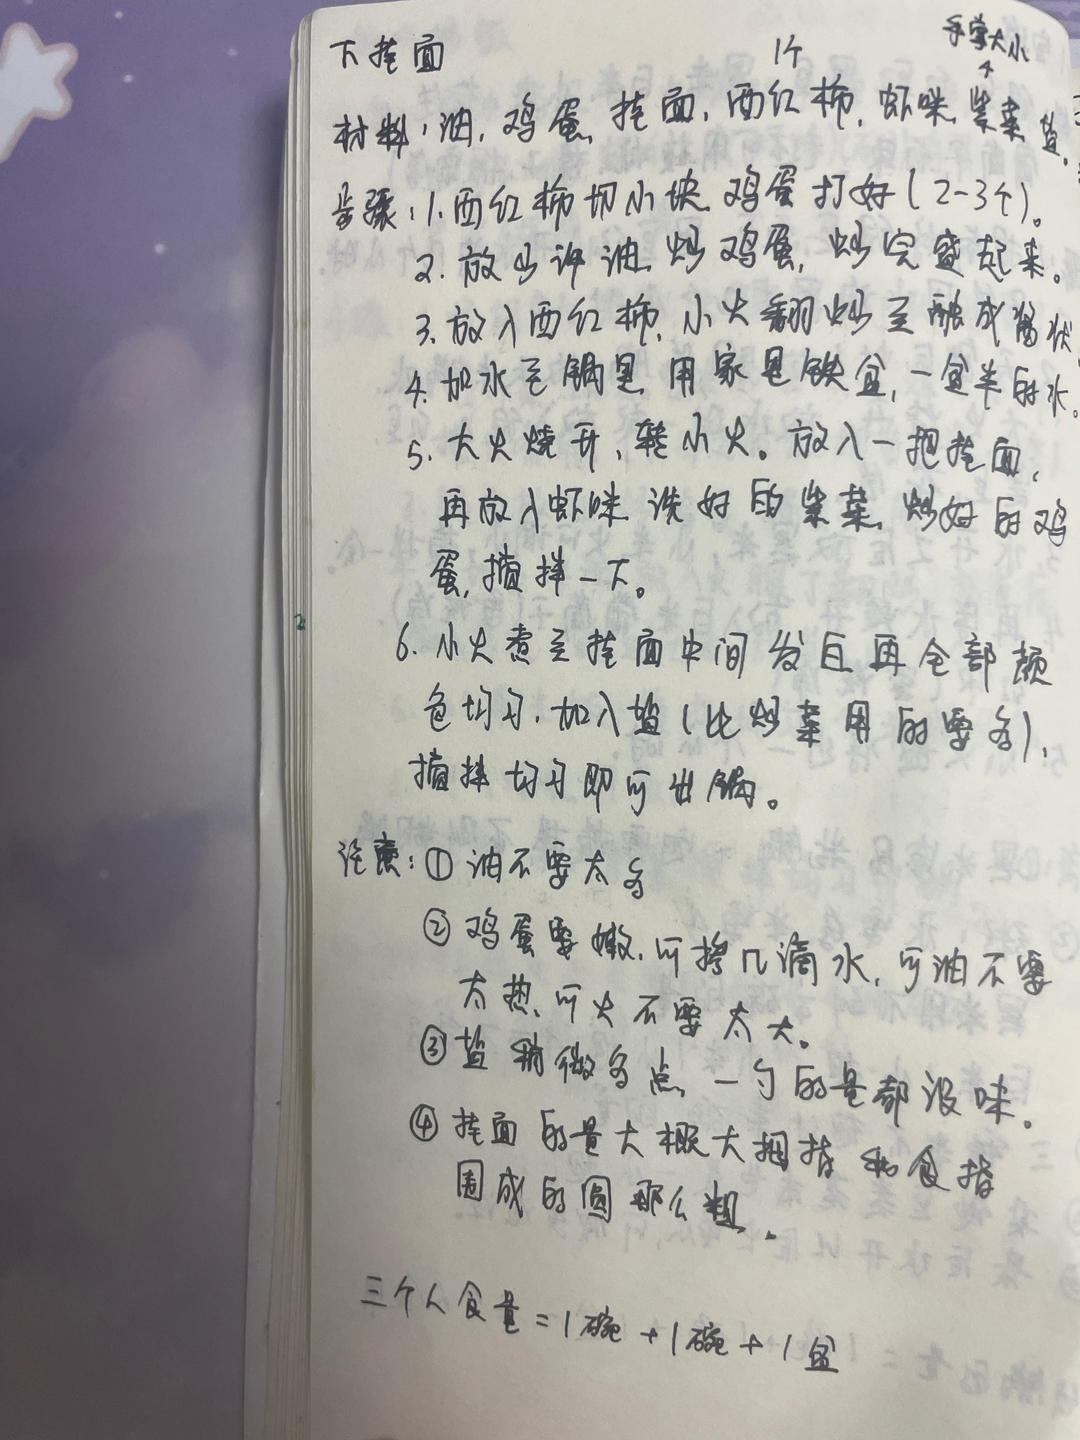 下挂面
1个 手掌大小
材料:油,鸡蛋,挂面,西红柿,虾咪,紫菜,盐。
步骤:1.西红柿切小块,鸡蛋打好(2-3个)。
2.放少许油,炒鸡蛋,炒完盛起来。
3.放入西红柿,小火翻炒至融成酱状。
4.加水至锅里,用家里铁盆,一盆半的水。
5.大火烧开,转小火。放入一把挂面,
再放入虾咪,洗好的紫菜,炒好的鸡
蛋,搅拌一下。
6.小火煮至挂面中间发白再全部颜
色均匀,加入盐(比炒菜用的要多),
搅拌均匀即可出锅。
注意:①油不要太多
②鸡蛋要嫩,可掺几滴水,可油不要
太热,可火不要太大。
③盐稍微多点,一勺的量都没味。
④挂面的量大概大拇指和食指
围成的圆那么粗。
三个人食量=1碗+1碗+1盆